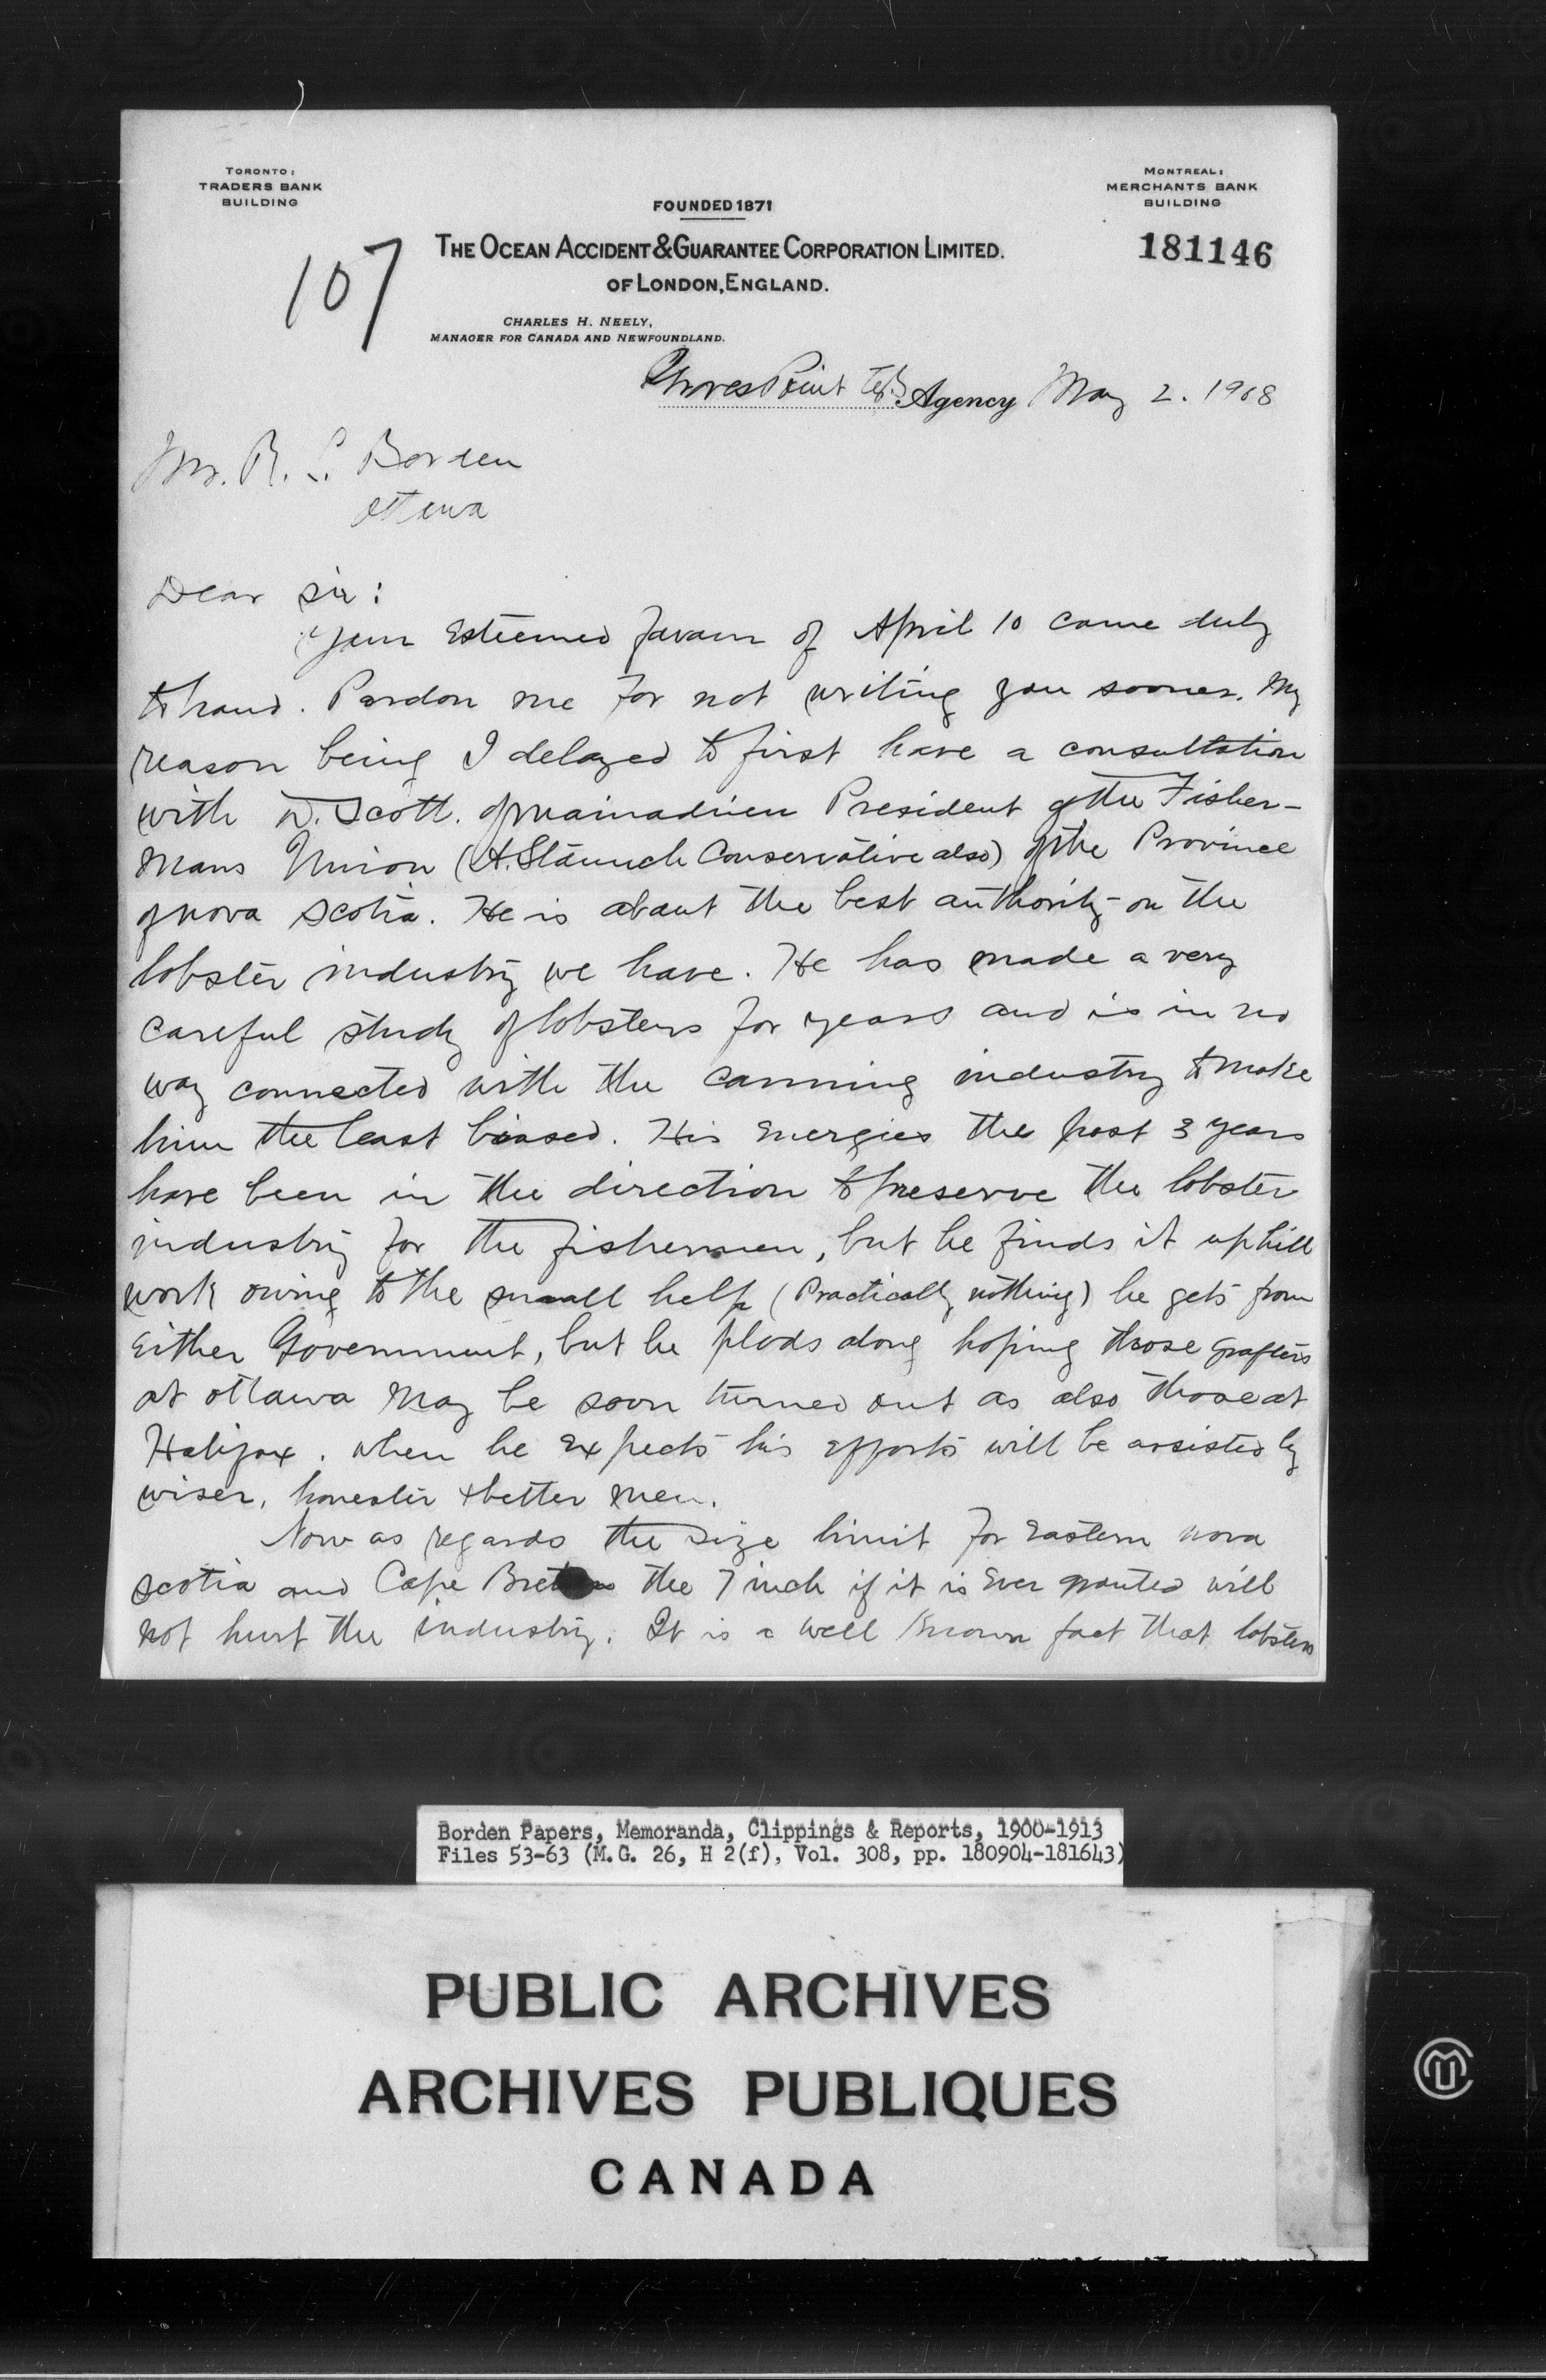 TORONTO:
TRADERS BANK
BUILDING
MONTREAL:
MERCHANTS BANK
BUILDING
FOUNDED 1871
181146
107
THE OCEAN ACCIDENT & GUARANTEE CORPORATION LIMITED.
OF LONDON, ENGLAND.
CHARLES H. NEELY,
MANAGER FOR CANADA AND NEWFOUNDLAND.
Point Agency May 2. 1908
Mr. R. L. Borden
Ottawa
Dear Sir:
Your Esteemed favour of April 10 came duly
to hand. Pardon me for not writing you sooner. My
reason being I delayed to first have a consultation
with W. Scott. of mainadieu President of the Fisher-
mans Union (A. Staunch Conservative also) of the Province
of nova Scotia. He is about the best authority on the
lobster industry we have. He has made a very
careful study of lobsters for years and is in no
way connected with the canning industry to make
him the least biased. His Energies the past 3 years
have been in the direction to preserve the lobster
industry for the fishermen, but he finds it uphill
work owing to the small help (Practically nothing) he gets from
Either Government, but he plods along hoping those grafters
at ottawa may be soon turned out as also those at
Halifax. when he Expects his efforts will be assisted by
wiser, honester + better men.
Now as regards the size limit for Eastern nova
Scotia and Cape Breton the 7 inch if it is Ever granted will
not hurt the industry. It is a well known fact that lobsters
Borden Papers, Memoranda, Clippings & Reports, 1900-1913
Files 53-63 (M.G. 26, H 2(f), Vol. 308, pp. 180904-181643)
PUBLIC ARCHIVES
ARCHIVES PUBLIQUES
CANADA